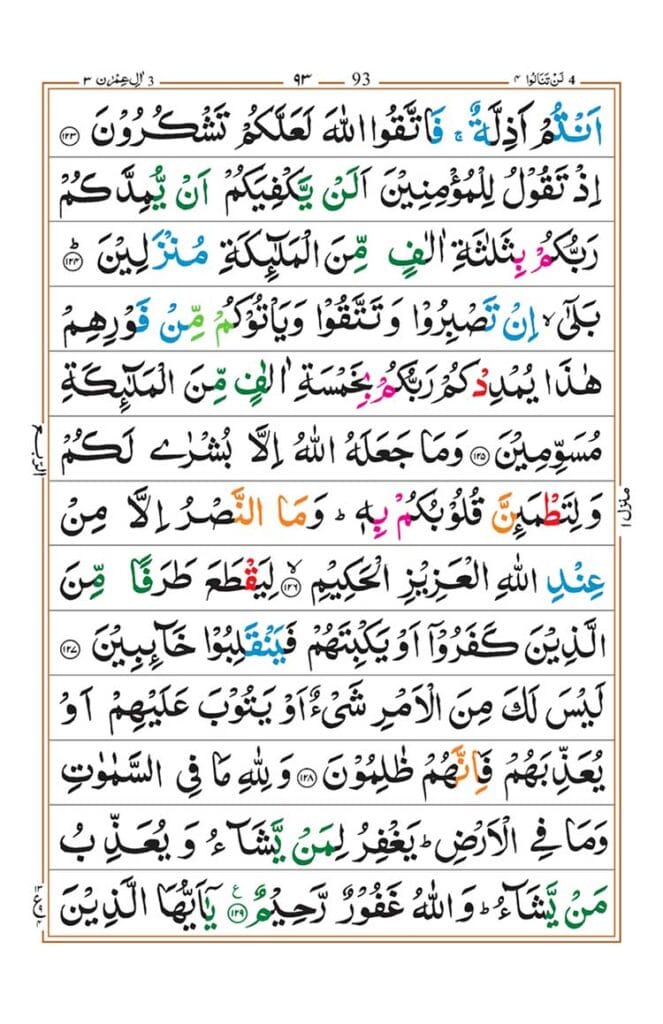 اٰلِ عِمْرٰن ٣ 3 ٩٣ 93 لَنْ تَنَالُوا ٤ 4
اَنْتُمْ اَذِلَّةٌ ۚ فَاتَّقُوا اللّٰهَ لَعَلَّكُمْ تَشْكُرُوْنَ ﴿۱۲۳﴾
اِذْ تَقُوْلُ لِلْمُؤْمِنِيْنَ اَلَنْ يَّكْفِيَكُمْ اَنْ يُّمِدَّكُمْ
رَبُّكُمْ بِثَلٰثَةِ اٰلٰفٍ مِّنَ الْمَلٰٓئِكَةِ مُنْزَلِيْنَ ﴿۱۲۴﴾ؕ
بَلٰٓى ۙ اِنْ تَصْبِرُوْا وَتَتَّقُوْا وَيَاْتُوْكُمْ مِّنْ فَوْرِهِمْ
هٰذَا يُمْدِدْكُمْ رَبُّكُمْ بِخَمْسَةِ اٰلٰفٍ مِّنَ الْمَلٰٓئِكَةِ
مُسَوِّمِيْنَ ﴿۱۲۵﴾ وَمَا جَعَلَهُ اللّٰهُ اِلَّا بُشْرٰى لَكُمْ
وَلِتَطْمَئِنَّ قُلُوْبُكُمْ بِهٖ ؕ وَمَا النَّصْرُ اِلَّا مِنْ
عِنْدِ اللّٰهِ الْعَزِيْزِ الْحَكِيْمِ ﴿۱۲۶﴾ۙ لِيَقْطَعَ طَرَفًا مِّنَ
الَّذِيْنَ كَفَرُوْۤا اَوْ يَكْبِتَهُمْ فَيَنْقَلِبُوْا خَآئِبِيْنَ ﴿۱۲۷﴾
لَيْسَ لَكَ مِنَ الْاَمْرِ شَىْءٌ اَوْ يَتُوْبَ عَلَيْهِمْ اَوْ
يُعَذِّبَهُمْ فَاِنَّهُمْ ظٰلِمُوْنَ ﴿۱۲۸﴾ وَلِلّٰهِ مَا فِى السَّمٰوٰتِ
وَمَا فِى الْاَرْضِ ؕ يَغْفِرُ لِمَنْ يَّشَآءُ وَيُعَذِّبُ
مَنْ يَّشَآءُ ؕ وَاللّٰهُ غَفُوْرٌ رَّحِيْمٌ ﴿۱۲۹﴾ ع يٰۤاَيُّهَا الَّذِيْنَ
الربع
منزل ۱